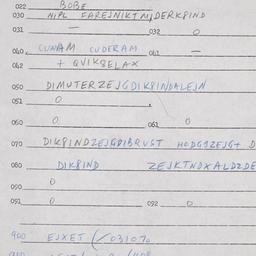 022 BOBE
030 NIPL FAREJNIKTMJDERK8IND
031 — 032 O
040 CUNAM CUDERAM 041 —
042 + QVIKSELAX
050 DIMUTERZEJGDIK8INDALEJN
051 O
060 O 061 O
070 DIK8INDZEJG8IBRUST HODG1ZEJG+ D
080 DIK8IND ZEJKTNDXALDZDE
090 O
091 O 092 O
900 EJXET (/031070